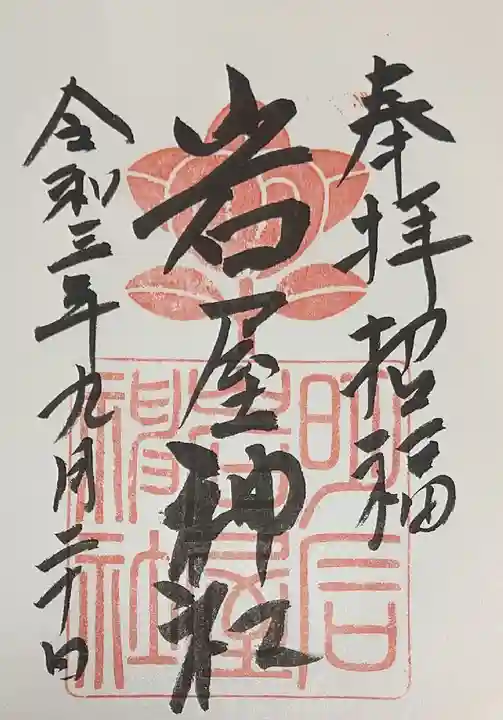 奉拝招福
岩屋神社
令和三年九月二十日
明石
岩屋
神社